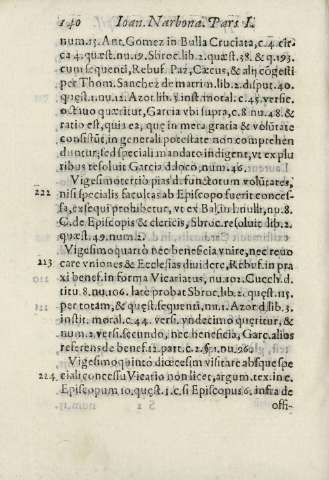 140 Ioan. Narbona. Pars I.
num.15. Ant. Gomez in Bulla Cruciata, c.4. cir-
ca 4. quæst. nu.19. Sbroc. lib.2. quæst.38. & q.193.
cum sequenti, Rebuf. Paz, Cæcus, & alij cõgesti
per Thom. Sanchez de matrim. lib.2. disput.40.
quęst.1. nu.12. Azor lib.5. inst. moral. c.45. versic.
octiuo quæritur, Garcia vbi supra, c.8 nu.48. &
ratio est, quia ea, quę in mera gracia & volũtate
consistũt, in generali potestate non comprehen
duntur, sed speciali mandato indigent, vt ex plu
ribus resoluit Garcia d. loco, num.46.
Vigesimotertio pias d. functorum volũtates,
222 nisi specialis facultas ab Episcopo fuerit conces-
sa, exsequi prohibetur, vt ex Bal. in l. nulli, nu.8.
C. de Episcopis & clericis, Sbroc. resoluit lib.2.
quæst.49. num.2.
Vigesimoquartò nec beneficia vnire, nec reuo
223 care vniones & Ecclesias diuidere, Rebuf. in pra
xi benef. in forma Vicariatus, nu.101. Cucch. d.
titu.8. nu.106. late probat Sbroc. lib.2. quęst.115.
per totam, & quęst. sequenti, nu.1. Azor d. lib.3.
instit. moral. c.44. versi. yndecimo queritur, &
num.2. versi. secundo, nec beneficia, Garc. alios
referens de benef. 12. part. c.2. §.1. nu.96.
Vigesimoquintò diœcesim visitare absque spe
224 ciali concessu Vicario non licet, argum. tex. in c.
Episcopum 10. quęst.1. c. si Episcopus 16. infra de
offi-